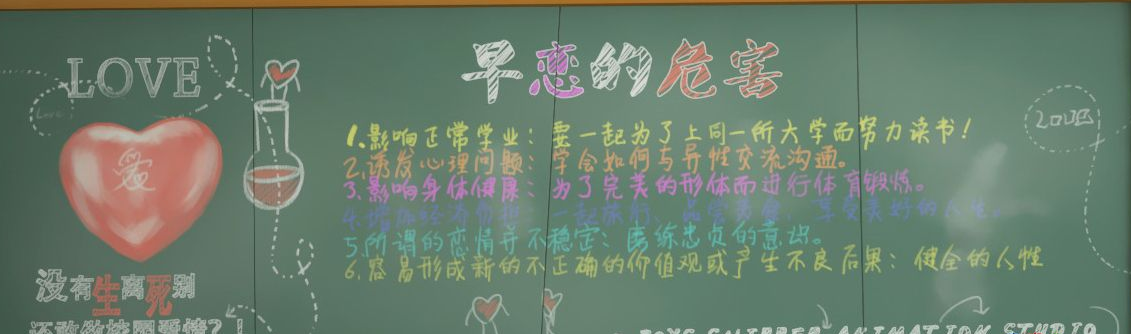 LOVE
早恋的危害
Love
LOVE
爱
1.影响正常学业：要一起为了上同一所大学而努力读书！
2.诱发心理问题：学会如何与异性交流沟通。
3.影响身体健康：为了完美的形体而进行体育锻炼。
4.增加经济负担：一起旅行、品尝美食，享受美好的人生。
5.所谓的恋情并不稳定：磨练忠贞的意识。
6.容易形成新的不正确的价值观或产生不良后果：健全的人性
没有生离死别
还敢做校园爱情？！
ANIMATION STUDIO